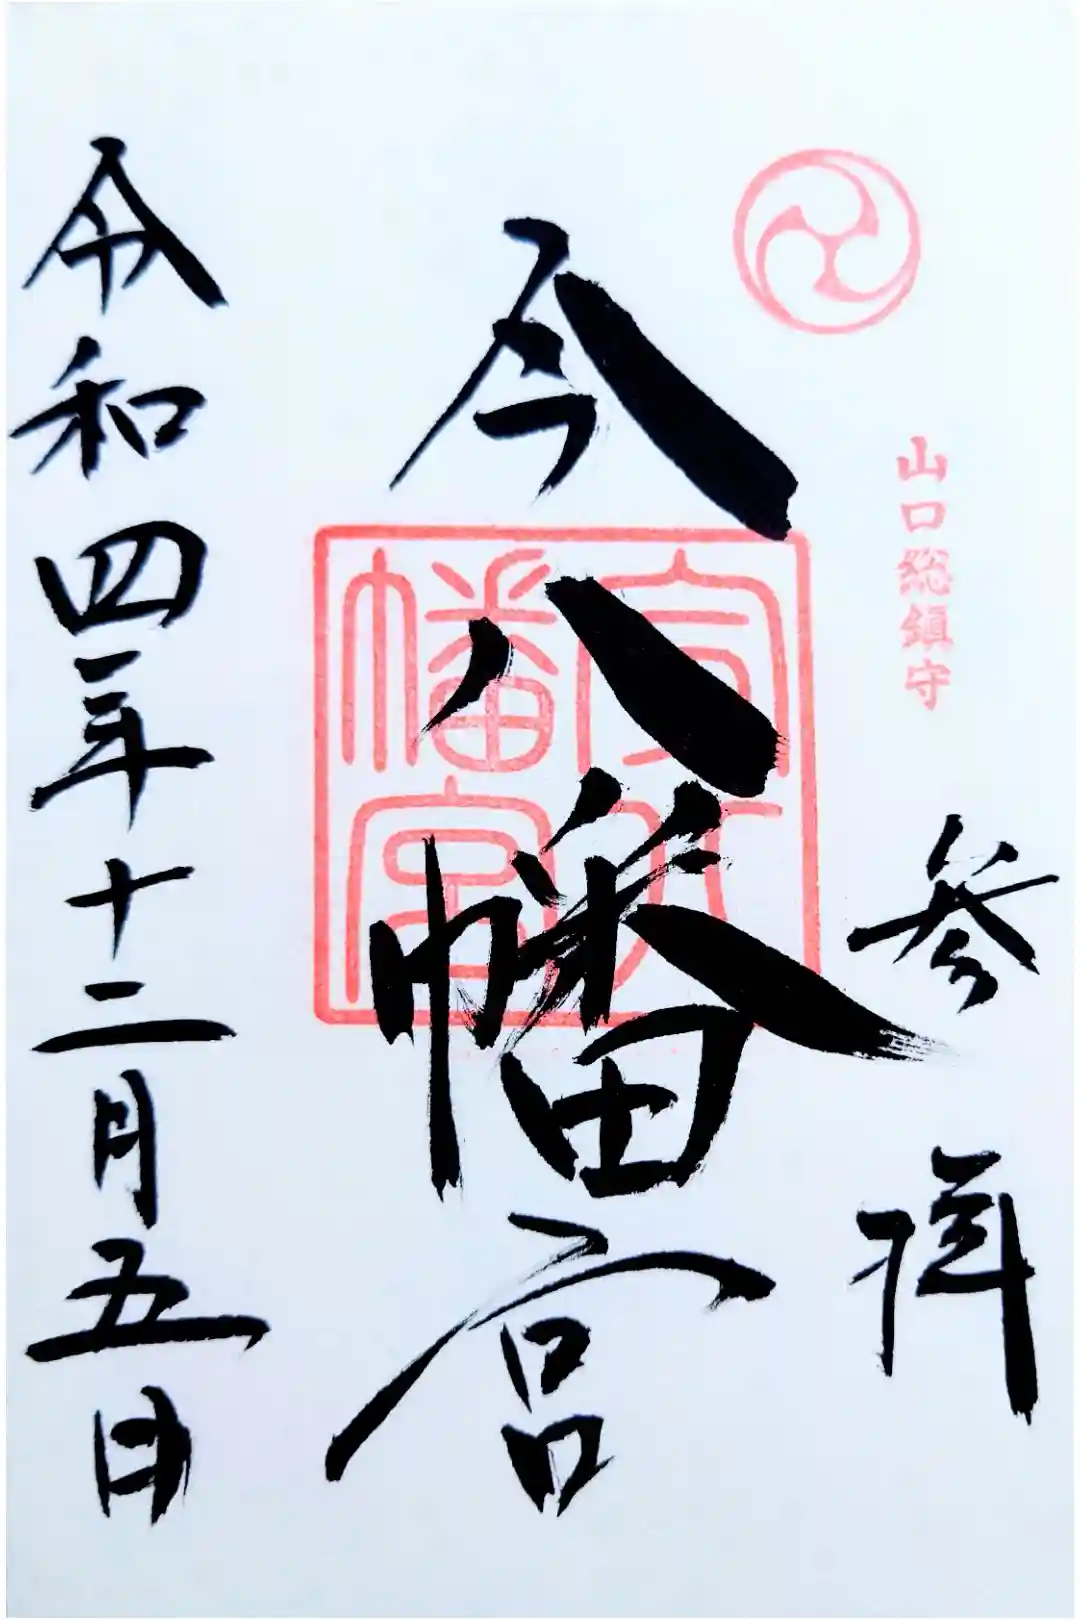 山口総鎮守
参拝
今八幡宮
今八幡宮
令和四年十二月五日